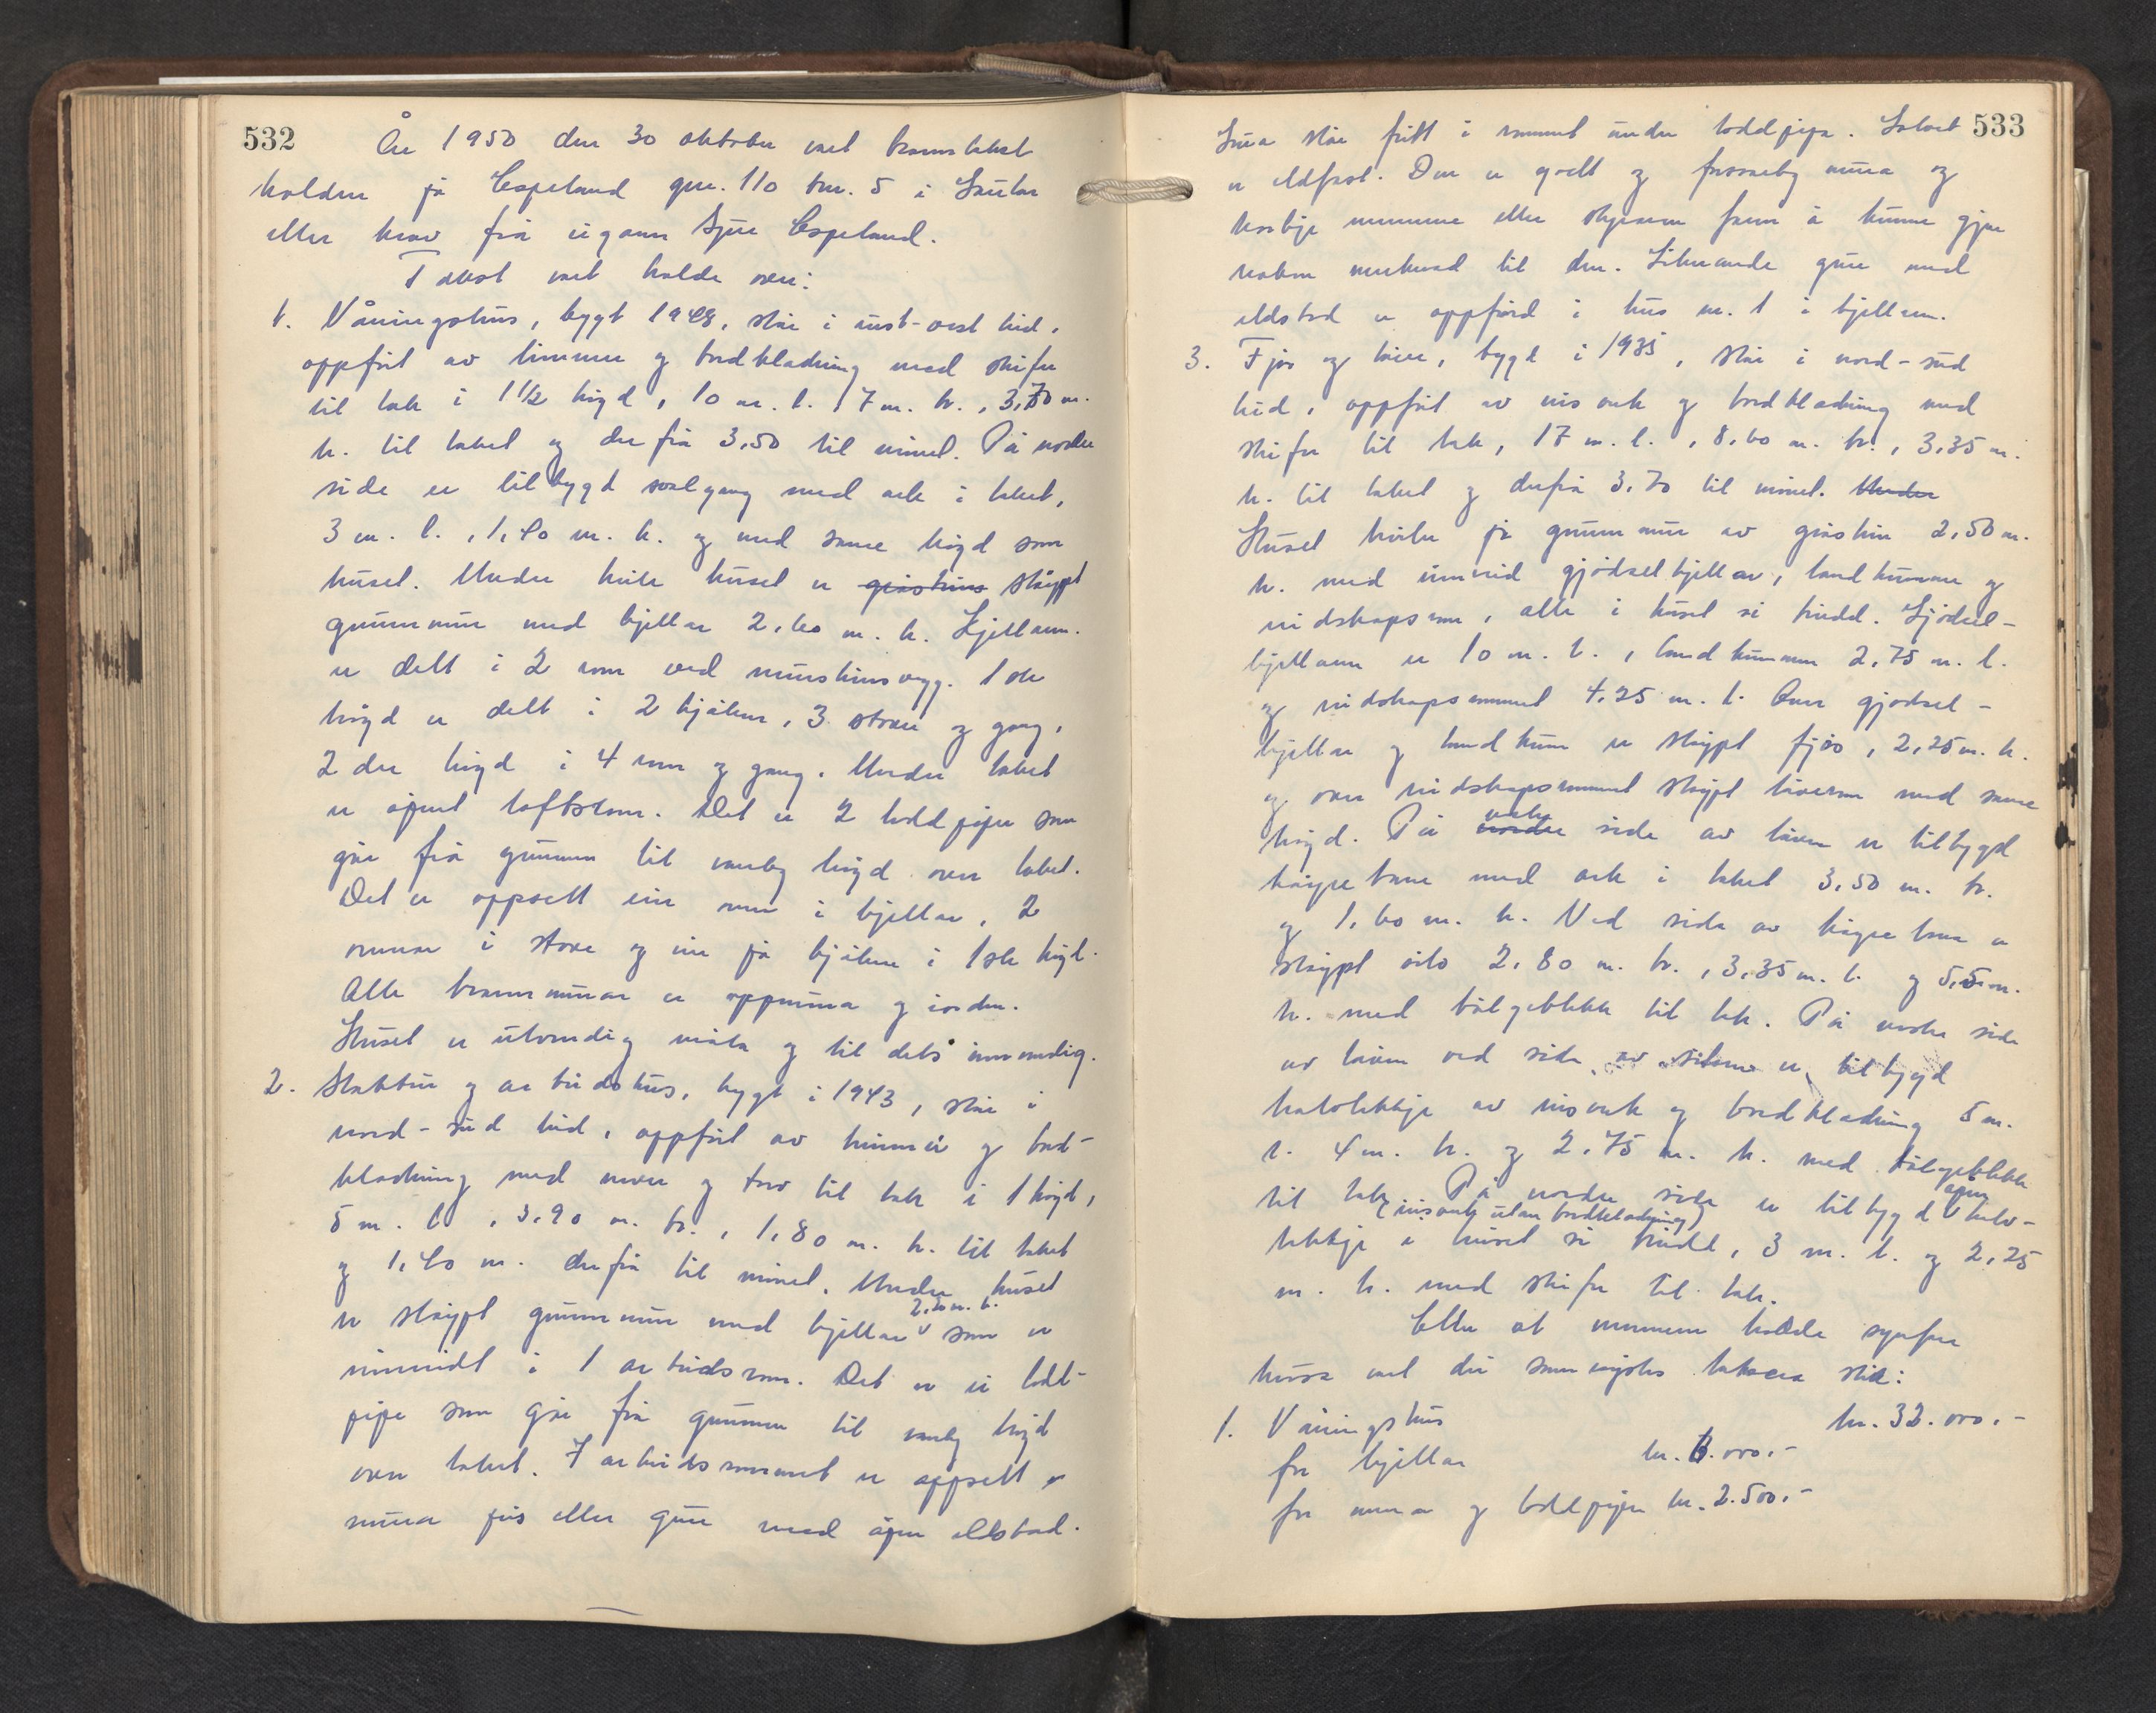 532
År 1950 den 30 oktober vart branntakst
halden på Espeland gnr. 110 bnr. 5 i Haukas
etter krav frå eigaren Sjur Espeland.
Takst vart halde over:
1. Våningshus, bygt 1948, står i aust-vest leid,
oppført av timmer og bordkledning med skifer
til tak i 1 1/2 høgd, 10 m. l. 7 m. br., 3,70 m.
h. til taket og derfrå 3,50 til mønet. På nordre
side er tilbygd svalgang med ark i taket,
3 m. l., 1,40 m. br. og med same høgd som
huset. Under heile huset er gråsteins støypt
grunnmur med kjellar 2,60 m. h. Kjellaren
er delt i 2 rom ved mursteinsvegg. 1ste
høgd er delt i 2 kjøken, 3 stover og gang,
2dre høgd i 4 rom og gang. Under taket
er ope loftsrom. Det er 2 loddpiper som
går frå grunnen til vanleg høgd over taket.
Det er oppsett ein omn i kjellar, 2
omnar i stove og ein på kjøken i 1ste høgd.
Alle brannmurar er oppmura og i orden.
Huset er utvendig måla og til dels innvendig.
2. Stabbur og arbeidshus, bygt i 1943, står i
nord-sud leid, oppført av timmer og bord-
kledning med never og torv til tak i 1 høgd,
5 m. l., 3,90 m. br., 1,80 m. h. til taket
og 1,40 m. derfrå til mønet. Under huset
er støypt grunnmur med kjellar 2,20 m. h. som er
innreidt i 1 arbeidsrom. Det er ei lodd-
pipe som går frå grunnen til vanleg høgd
over taket. I arbeidsrommet er oppsett
mura peis eller grue med open eldstad.
533
Grua står fritt i rommet under loddpipa. Golvet
er eldfast. Den er godt og forsvarleg mura og
korkje mennene eller skjønnar fann å kunne gjere
nokon merknad til den. Liknande grue med
eldstad er oppførd i hus nr. 1 i kjellaren.
3. Fjøs og løe, bygt i 1935, står i nord-sud
leid, oppført av reisverk og bordkledning med
skifer til tak, 17 m. l., 8,60 m. br., 3,35 m.
h. til taket og derfrå 3,70 til mønet. Under
Huset kviler på grunnmur av gråstein 2,50 m.
h. med innreid gjødselkjellar, landkummar og
reidskapsrom, alle i huset si breidd. Gjødsel-
kjellaren er 10 m. l., landkummen 2,75 m. l.
og reidskapsrommet 4,25 m. l. Over gjødsel-
kjellar og landkum er støypt fjøs, 2,25 m. h.
og over reidskapsrommet støypt løerom med same
høgd. På nordre vestre side av løen er tilbygd
køyrebane med ark i taket 3,50 m. br.
og 1,60 m. h. Ved sida av køyrebana er
støypt silo 2,80 m. br., 3,35 m. l. og 5,5 m.
h. med bølgeblekk til tak. På vestre side
av løen ved sida av siloen er tilbygd
halvtekkje av reisverk og bordkledning 5 m.
l. 4 m. br. og 2,75 m. h. med bølgeblekk
til tak. På nordre side er tilbygd open halv-
(reisverk utan bordkledning)
tekkje i huset si breidd, 3 m. l. og 2,25
m. h. med skifer til tak.
Etter at mennene hadde synfare
husa vart dei samrøystes takserte slik:
1. Våningshus kr. 32.000.-
for kjellar kr. 6.000.-
for murar og loddpiper kr. 2.500.-